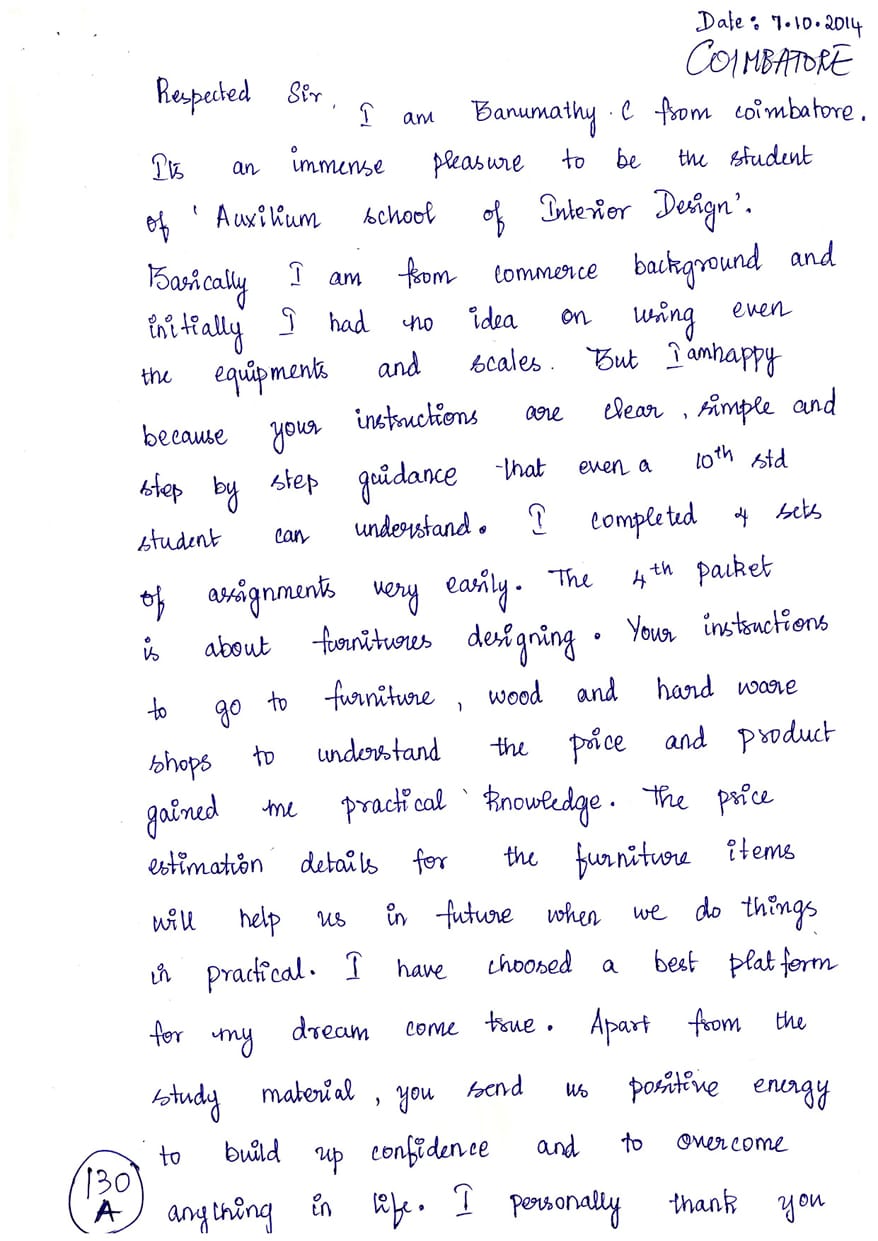 Date: 7.10.2014
COIMBATORE
Respected Sir,
I am Banumathy.C from coimbatore.
Its an immense pleasure to be the student
of 'Auxilium school of Interior Design'.
Basically I am from commerce background and
initially I had no idea on using even
the equipments and scales. But I amhappy
because your instructions are clear, simple and
step by step guidance that even a 10th std
student can understand. I completed 4 sets
of assignments very easily. The 4th packet
is about furnitures designing. Your instructions
to go to furniture, wood and hard ware
shops to understand the price and product
gained me practical knowledge. The price
estimation details for the furniture items
will help us in future when we do things
in practical. I have choosed a best platform
for my dream come true. Apart from the
study material, you send us positive energy
to build up confidence and to overcome
anything in life. I personally thank you
130
A